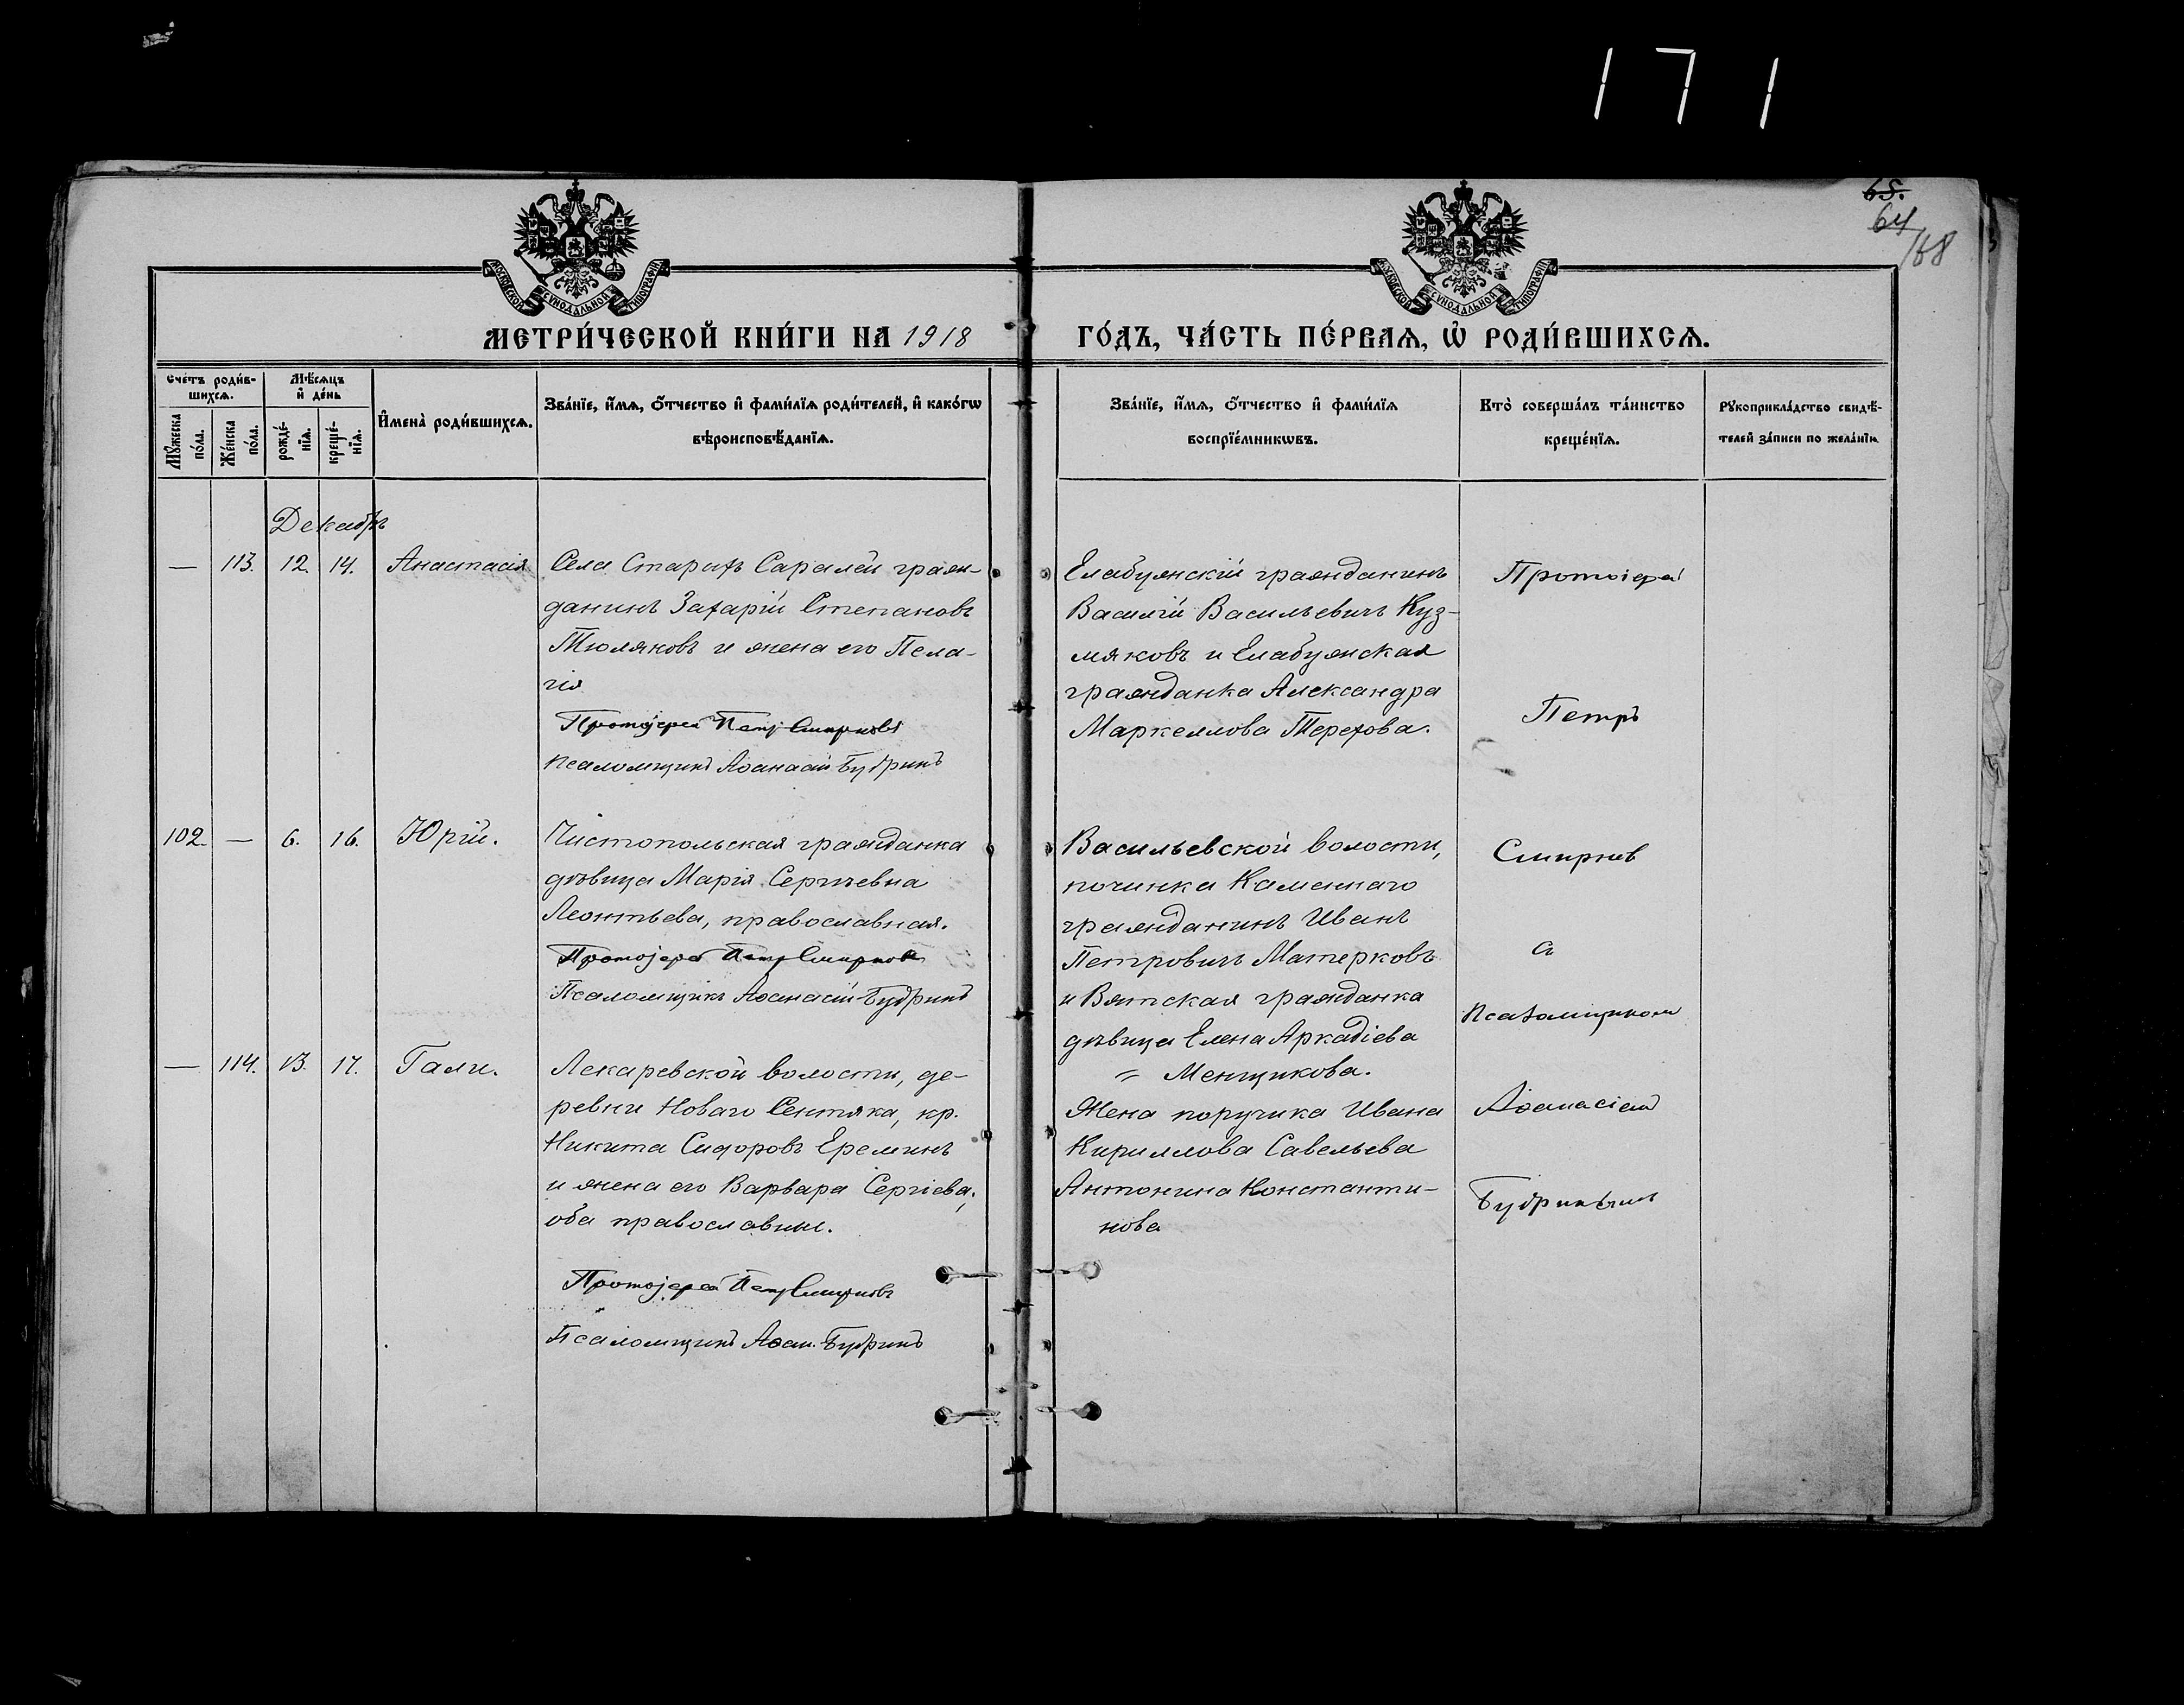 171
65.
64
168
МОСКОВСКОЙ СѴНОДАЛЬНОЙ ТИПОГРАФІИ
МОСКОВСКОЙ СѴНОДАЛЬНОЙ ТИПОГРАФІИ
МЕТРИ́ЧЕСКОЙ КНИ́ГИ НА 1918 ГО́ДЪ, ЧА́СТЬ ПЕ́РВАѦ, Ѡ҆ РОДИ́ВШИХСѦ.
Сче́тъ роди́в-
шихсѧ.
Мꙋ́жеска по́ла.
Же́нска по́ла.
Мѣ́сѧцъ и҆ де́нь
рожде́-нїѧ.
креще́-нїѧ.
И҆мена̀ роди́вшихсѧ.
Зва́нїе, и҆́мѧ, ѻ҆́тчество и҆ фами́лїѧ роди́телей, и҆ како́гѡ
вѣроисповѣ́данїѧ.
Зва́нїе, и҆́мѧ, ѻ҆́тчество и҆ фами́лїѧ
воспрїе́мникѡвъ.
Кто̀ соверша́лъ та́инство
креще́нїѧ.
Рꙋкоприкла́дство свидѣ́-
телей за́писи по жела́нїю.
Декабрь
— 113. 12. 14. Анастасія
Села Старыхъ Саралей граж-
данинъ Захарій Степановъ
Тюляковъ и жена его Пела-
гія
Протоіерей Петръ Смирновъ
Псаломщикъ Аѳанасій Будринъ
Елабужскій гражданинъ
Василій Васильевичъ Куз-
мяковъ и Елабужская
гражданка Александра
Маркеллова Терехова.
102. — 6. 16. Юрій.
Чистопольская гражданка
дѣвица Марія Сергѣевна
Леонтьева, православная.
Протоіерей Петръ Смирновъ
Псаломщикъ Аѳанасій Будринъ
Васильевской волости,
починка Каменнаго
гражданинъ Иванъ
Петровичъ Матерковъ
и Вятская гражданка
дѣвица Елена Аркадіева
= Менщикова.
— 114. 13. 17. Гали.
Лекаревской волости, де-
ревни Новаго Сентяка, кр.
Никита Сидоровъ Ереминъ
и жена его Варвара Сергіева,
оба православные.
Протоіерей Петръ Смирновъ
Псаломщикъ Аѳан. Будринъ
Жена поручика Ивана
Кириллова Савельева
Антонина Константи-
нова
Протоіерей
Петръ
Смирнов
съ
Псаломщиком
Аѳанасіем
Будринымъ